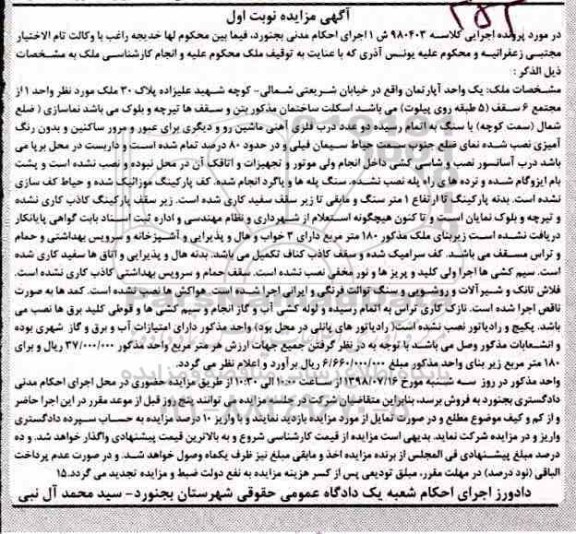 ۲۵۲
آگهی مزایده نوبت اول
در مورد پرونده اجرایی کلاسه ۹۸۰۴۰۳ ش ۱ اجرای احکام مدنی بجنورد، فیما بین محکوم لها خدیجه راغب با وکالت تام الاختیار
مجتبی زعفرانیه و محکوم علیه یونس آذری که با عنایت به توقیف ملک محکوم علیه و انجام کارشناسی ملک به مشخصات
ذیل الذکر :
مشخصات ملک: یک واحد آپارتمان واقع در خیابان شریعتی شمالی- کوچه شهید علیزاده پلاک ۳۰ ملک مورد نظر واحد ۱ از
مجتمع ۶ سقف (۵ طبقه روی پیلوت) می باشد اسکلت ساختمان مذکور بتن و سقف ها تیرچه و بلوک می باشد نماسازی ( ضلع
شمال (سمت کوچه) با سنگ به اتمام رسیده دو عدد درب فلزی آهنی ماشین رو و دیگری برای عبور و مرور ساکنین و بدون رنگ
آمیزی نصب شده نمای ضلع جنوب سمت حیاط سیمان فیلی و در حدود ۸۰ درصد تمام شده است و داربست در محل برپا می
باشد درب آسانسور نصب و شاسی کشی داخل انجام ولی موتور و تجهیزات و اتاقک آن در محل نبوده و نصب نشده است و پشت
بام ایزوگام شده و نرده های راه پله نصب نشده، سنگ پله ها و پاگرد انجام شده. کف پارکینگ موزائیک شده و حیاط کف سازی
نشده است. بدنه پارکینگ تا ارتفاع ۱ متر سنگ و مابقی تا زیر سقف سفید کاری شده است. زیر سقف پارکینگ کاذب کاری نشده
و تیرچه و بلوک نمایان است و تا کنون هیچگونه استعلام از شهرداری و نظام مهندسی و اداره ثبت اسناد بابت گواهی پایانکار
دریافت نشده است زیربنای ملک مذکور ۱۸۰ متر مربع دارای ۳ خواب و هال و پذیرایی و آشپزخانه و سرویس بهداشتی و حمام
و تراس مسقف می باشد. کف سرامیک شده و سقف کاذب کناف تکمیل می باشد. بدنه هال و پذیرایی و اتاق ها سفید کاری شده
است. سیم کشی ها اجرا ولی کلید و پریز ها و نور مخفی نصب نشده است. سقف حمام و سرویس بهداشتی کاذب کاری نشده است.
فلاش تانک و شیر آلات و روشویی و سنگ توالت فرنگی و ایرانی اجرا شده است. هواکش ها نصب نشده است. کمد ها به صورت
ناقص اجرا شده است. نازک کاری تراس به اتمام رسیده و لوله کشی آب و گاز انجام و سیم کشی ها و قوطی کلید برق ها نصب می
باشد. پکیج و رادیاتور نصب نشده است( رادیاتور های پانلی در محل بود) واحد مذکور دارای امتیازات آب و برق و گاز شهری بوده
و انشعابات مذکور وصل می باشند. با توجه به در نظر گرفتن جمیع جهات ارزش هر متر مربع واحد مذکور ۳۷/۰۰۰/۰۰۰ ریال و برای
۱۸۰ متر مربع زیر بنای واحد مذکور مبلغ ۶/۶۶۰/۰۰۰/۰۰۰ ریال برآورد و اعلام نظر می گردد.
واحد مذکور در روز سه شنبه مورخ ۱۳۹۸/۰۷/۱۶ از ساعت ۱۰:۰۰ الی ۱۰:۳۰ از طریق مزایده حضوری در محل اجرای احکام مدنی
دادگستری بجنورد به فروش برسد، بنابراین متقاضیان شرکت در جلسه مزایده می توانند پنج روز قبل از موعد مقرر در این اجرا حاضر
و از کم و کیف موضوع مطلع و در صورت تمایل از مورد مزایده بازدید نمایند و با واریز ۱۰ درصد مزایده به حساب سپرده دادگستری
واریز و در مزایده شرکت نماید. بدیهی است مزایده از قیمت کارشناسی شروع و به بالاترین قیمت پیشنهادی واگذار خواهد شد. و ده
درصد مبلغ پیشنهادی فی المجلس از برنده مزایده اخذ و مابقی مبلغ نیز ظرف یکماه وصول خواهد شد. و در صورت عدم پرداخت
الباقی (نود درصد) در مهلت مقرر، مبلق تودیعی پس از کسر هزینه مزایده به نفع دولت ضبط و مزایده تجدید می گردد.۱۵
دادورز اجرای احکام شعبه یک دادگاه عمومی حقوقی شهرستان بجنورد- سید محمد آل نبی